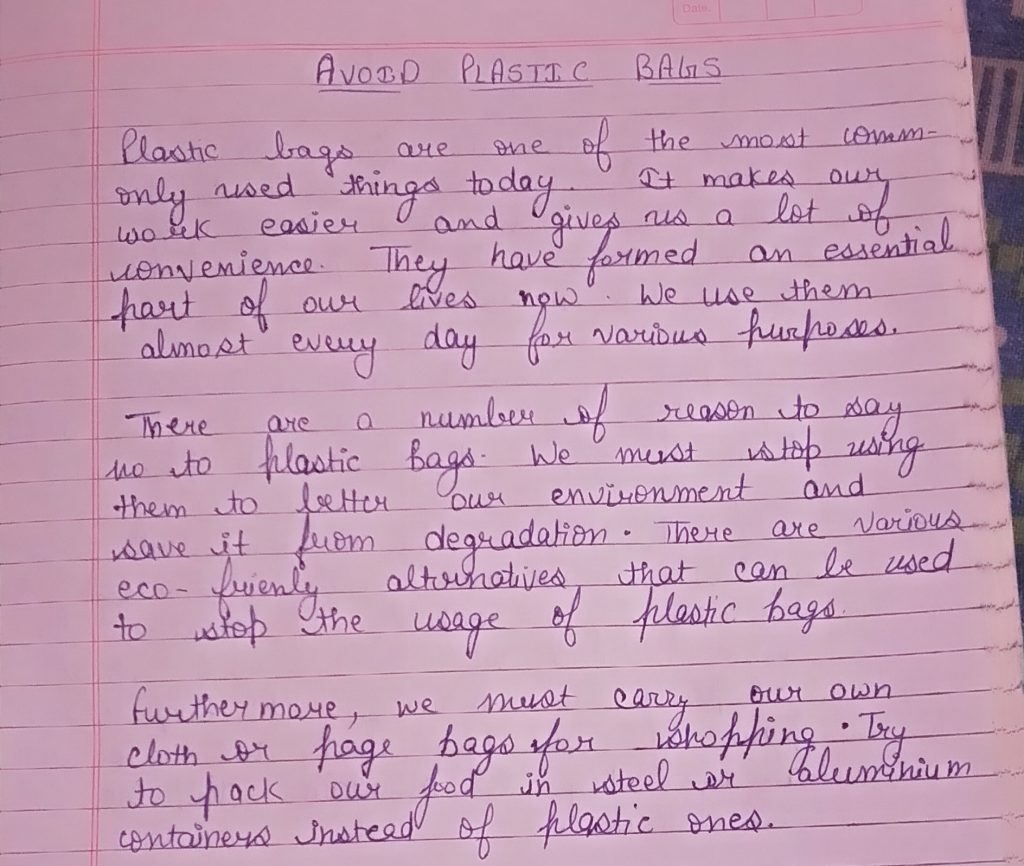 Date.
AVOID PLASTIC BAGS
Plastic bags are one of the most comm-
only used things today. It makes our
work easier and gives us a lot of
convenience. They have formed an essential
part of our lives now. We use them
almost every day for various purposes.
There are a number of reason to say
no to plastic bags. We must stop using
them to better our environment and
save it from degradation. There are various
eco-frienly alternatives that can be used
to stop the usage of plastic bags.
Furthermore, we must carry our own
cloth or page bags for shopping. Try
to pack our food in steel or aluminium
containers instead of plastic ones.